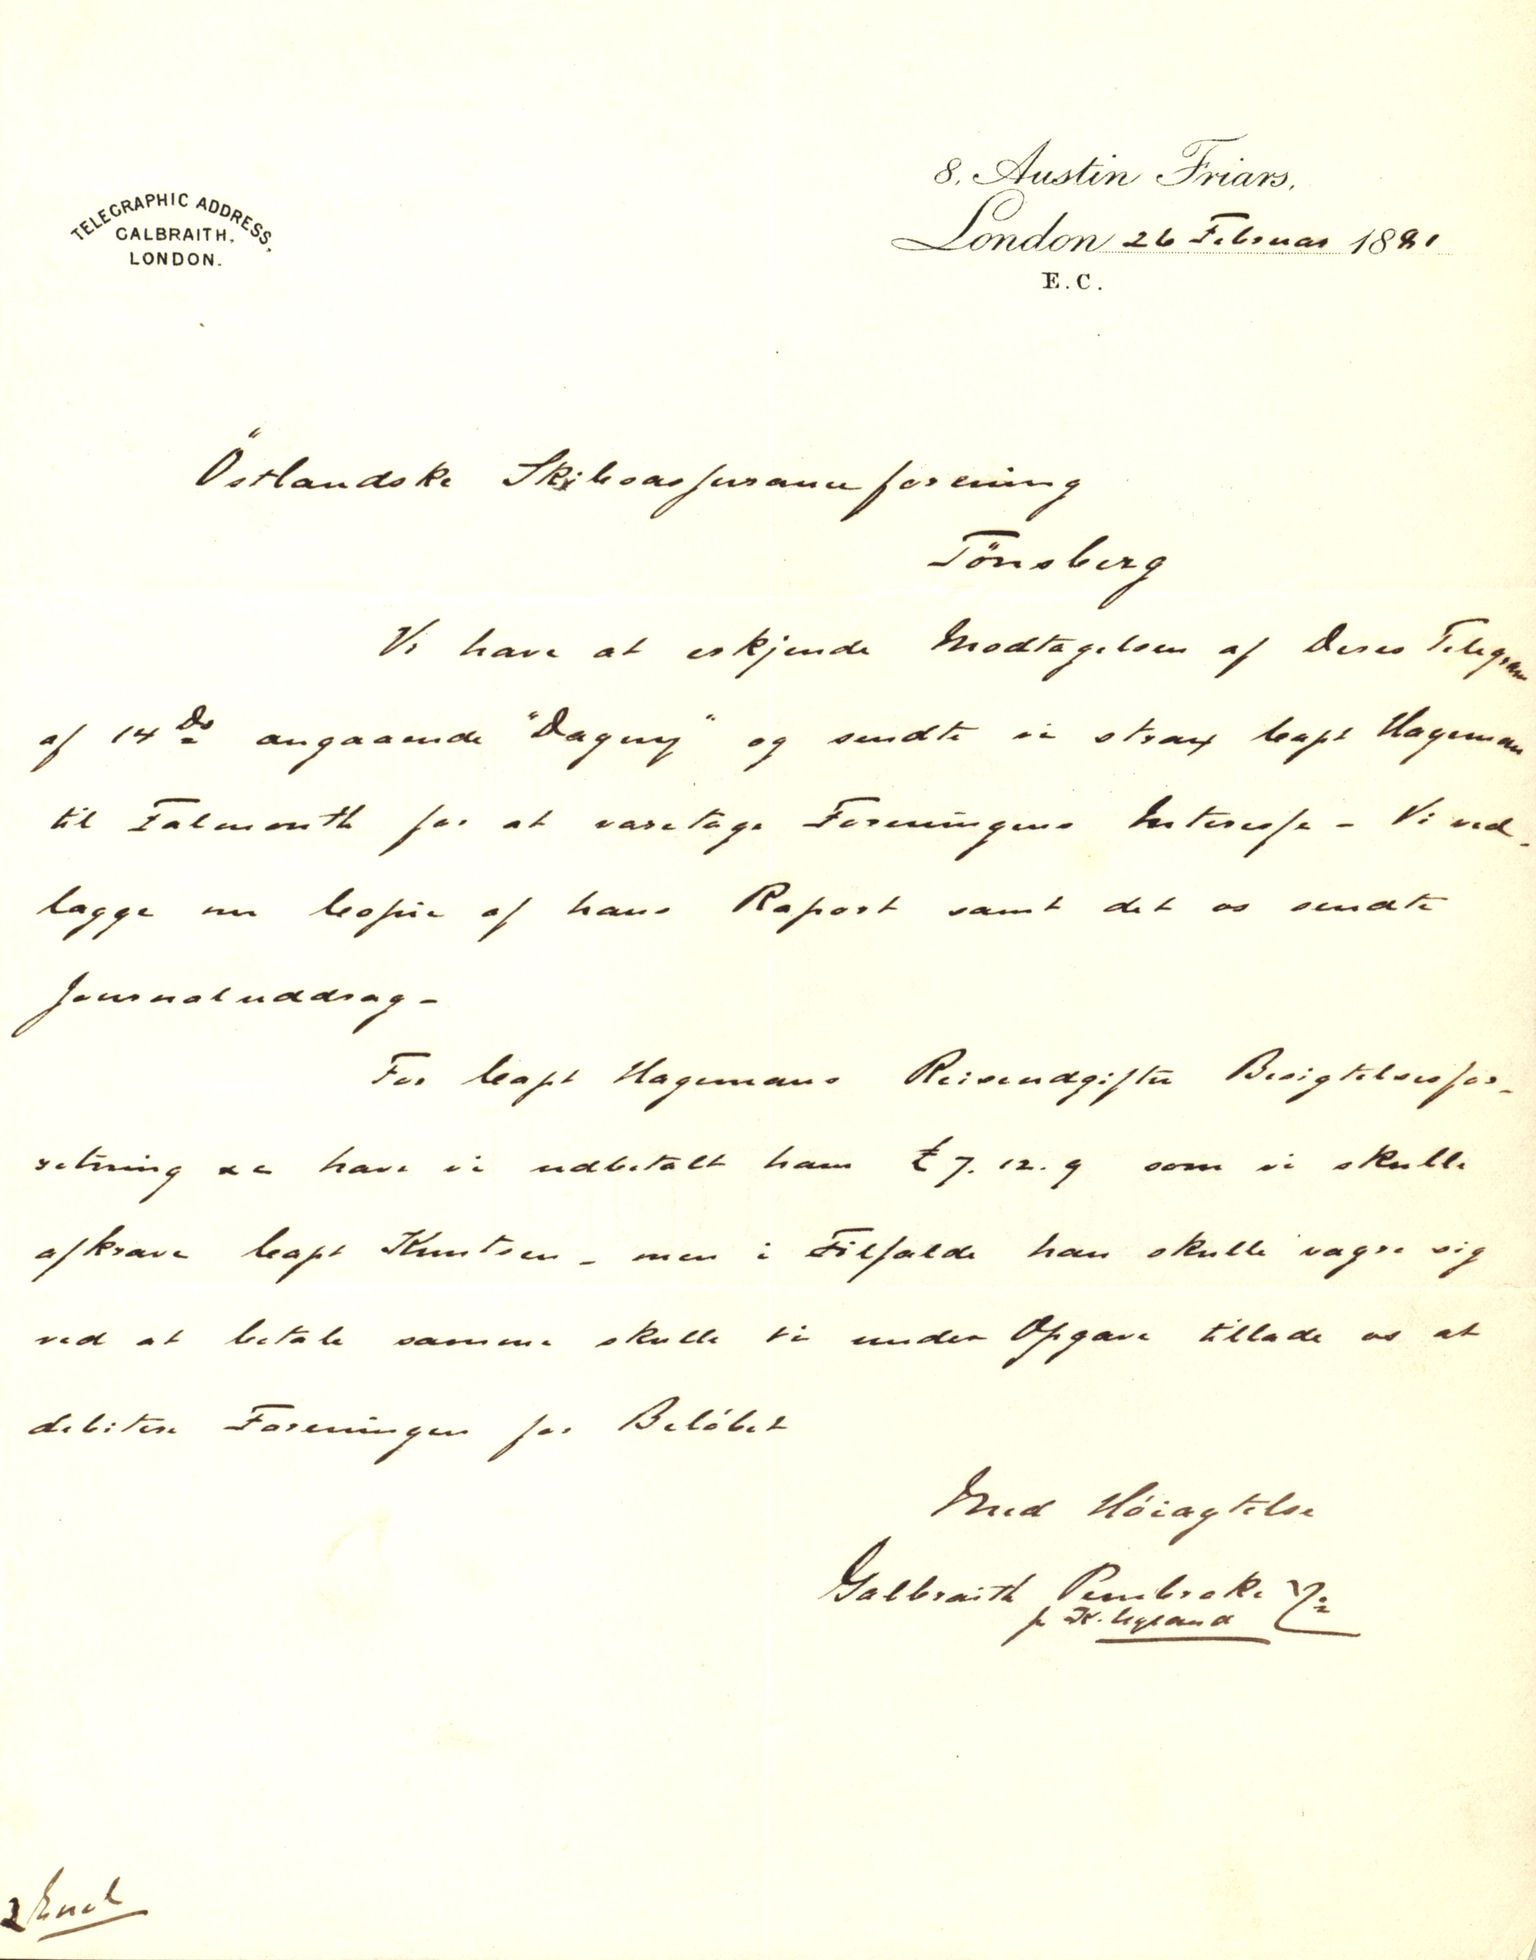 TELEGRAPHIC ADDRESS,
GALBRAITH,
LONDON.
8, Austin Friars,
London 26 Februar 1891
E.C.
Östlandske Skibsassuranceforening
Tönsberg
Vi have at erkjende Modtagelsen af Deres Telegram
af 14 Ds angaaende "Dagny" og sendte vi strax Capt Hageman
til Falmouth for at varetage Foreningens Interesse - Vi ved-
lagge nu Copie af hans Raport samt det os sendte
Journaluddrag -
For Capt Hagemans Reiseudgifter Besigtelsesfor-
retning &c have vi udbetalt ham £7.12.9 som vi skulle
afkræve Capt Knutsen - men i Tilfælde han skulle vægre sig
ved at betale samme skulle vi under Opgave tillade os at
debitere Foreningen for Belöbet
Med Höiagtelse
Galbraith Pembroke & Co
p K.
2 Encl